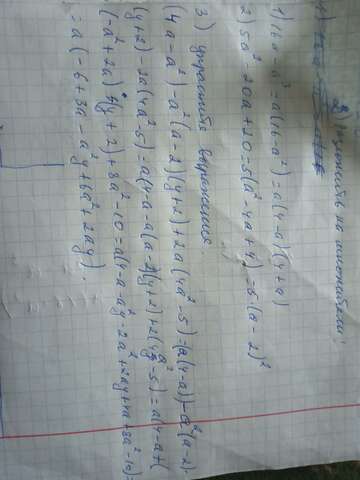 2) Разложить на множители:
1) 16a - a³ = a(16-a²) = a(4-a)(4+a)
2) 5a² - 20a + 20 = 5(a² - 4a + 4) = 5·(a-2)²
3) упростить выражения.
(4a - a²) - a²(a-2)(y+2) + 2a(4a²-5) = (a(4-a)) - a²(a-2)·
(y+2) - 2a(4a²-5) = a(4-a-a(a-2)(y+2) + 2(4a²-5) = a(4-a+(
(-a²+2a)·(y+2) + 8a² - 10 = a(4-a-a²y-2a²+2ay+4a+8a²-10) =
= a(-6+3a-a²y+6a²+2ay).